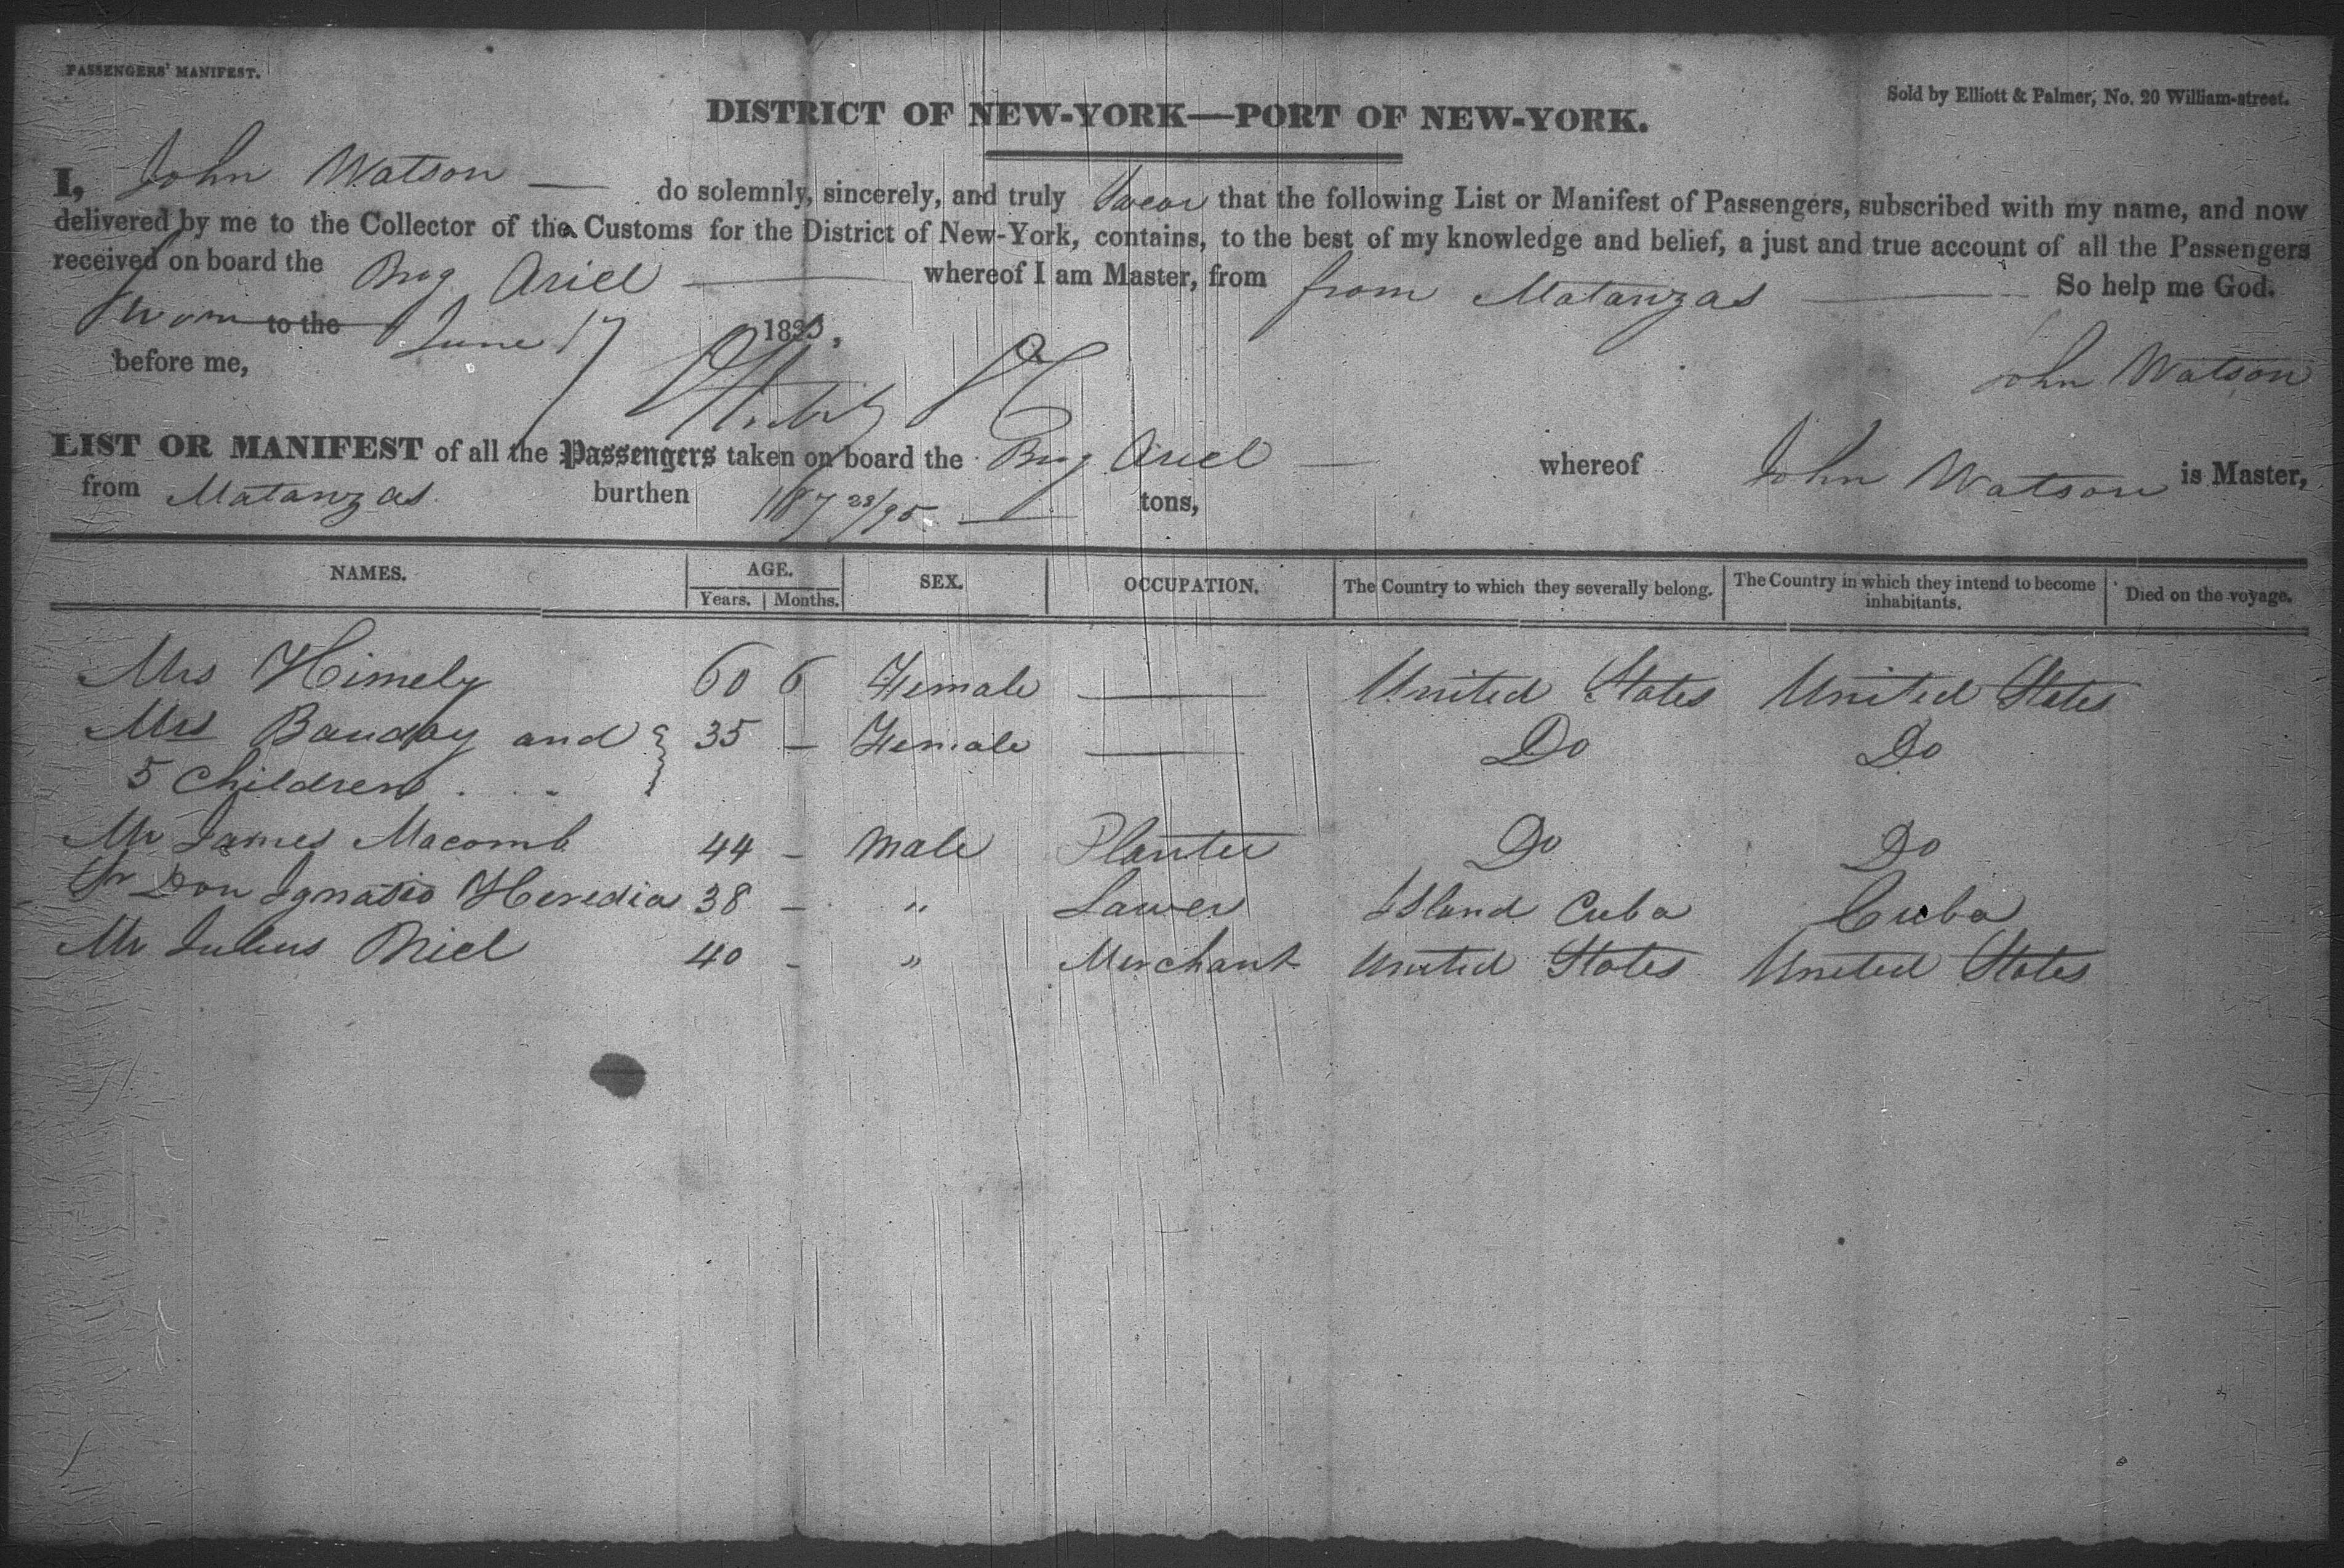 PASSENGERS' MANIFEST.
Sold by Elliott & Palmer, No. 20 William-street.
DISTRICT OF NEW-YORK—PORT OF NEW-YORK.
I, John Watson — do solemnly, sincerely, and truly Swear that the following List or Manifest of Passengers, subscribed with my name, and now
delivered by me to the Collector of the Customs for the District of New-York, contains, to the best of my knowledge and belief, a just and true account of all the Passengers
received on board the Brig Ariel — whereof I am Master, from from Matanzas — So help me God.
Sworn to the June 17 183 ,
before me, John Watson
LIST OR MANIFEST of all the Passengers taken on board the Brig Ariel — whereof John Watson is Master,
from Matanzas. burthen 187 28/95 — tons,
NAMES. AGE. SEX. OCCUPATION. The Country to which they severally belong. The Country in which they intend to become inhabitants. Died on the voyage.
Years. Months.
Mrs Himely 60 6 Female — United States United States
Mrs Bauduy and } 35 – Female — Do Do
5 Children . . -
Mr James Macomb 44 – Male Planter Do Do
Sr Don Ignatio Heredia 38 – " Lawer Island Cuba Cuba
Mr Julius 40 – " Merchant United States United States